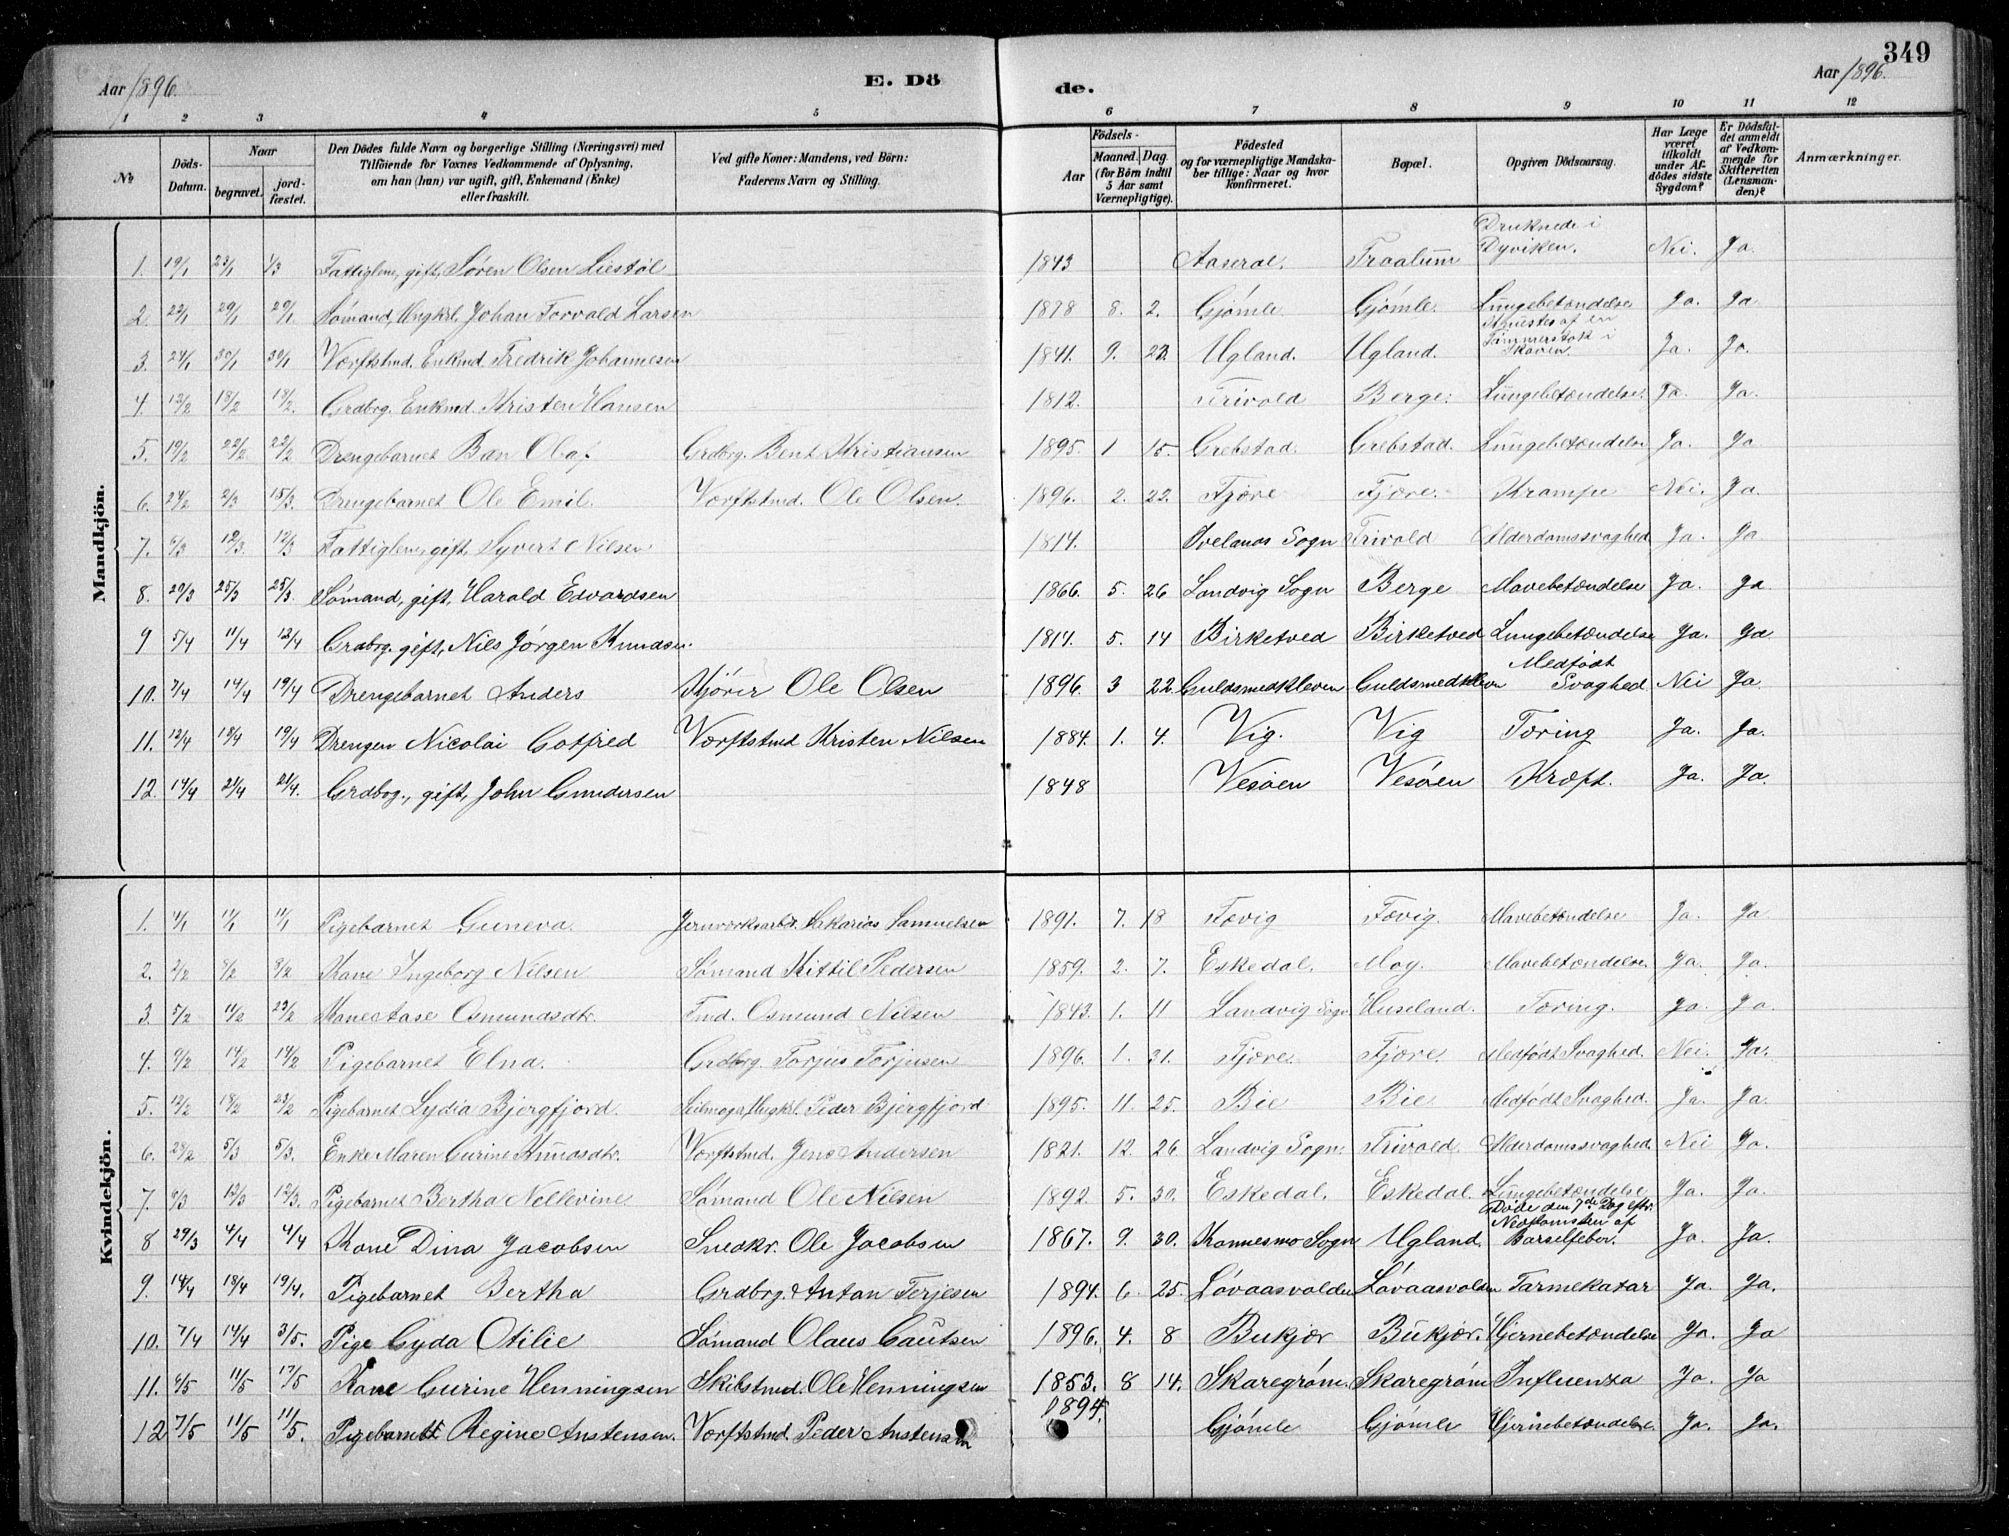 349
Aar 1896. E. Dö de. Aar 1896.
1 2 3 4 5 6 7 8 9 10 11 12
№ Döds-Datum. Naar begravet. jord-fæstet. Den Dödes fulde Navn og borgerlige Stilling (Næringsvei) med Tilföiende for Voxnes Vedkommende af Oplysning, om han (hun) var ugift, gift, Enkemand (Enke) eller fraskilt. Ved gifte Koner: Mandens, ved Börn: Faderens Navn og Stilling. Födsels- Aar Maaned. Dag (for Börn indtil 5 Aar samt Værnepligtige). Födested og for værnepligtige Mandskaber tillige: Naar og hvor konfirmeret. Bopæl. Opgiven Dödsaarsag. Har Læge været tilkaldt under Afdödes sidste Sygdom? Er Dödsfaldet anmeldt af Vedkommende for Skifteretten (Lensmanden)? Anmærkninger.
Mandkjön.
1. 19/1 23/1 1/3 Fattiglem, gift, Søren Olsen Liestøl 1843 Aaseral. Traalum Druknede i Dyviken. Nei. Ja.
2. 22/1 29/1 29/1 Sømand, Ungkrl. Johan Torvald Larsen 1878 8. 2. Gjømle Gjømle. Lungebetændelse Ja. Ja
3. 24/1 30/1 30/1 Værftstmd. Enkmd. Fredrik Johannesen 1841. 9. 22. Ugland. Ugland. Knustes af en Tømmerstok i Skoven. Ja. Ja.
4. 12/2 18/2 18/2. Grdbrg. Enkmd. Kristen Hansen 1812. Trivold Berge. Lungebetændelse. Ja. Ja.
5. 19/2 22/2 22/2 Drengebarnet Ben Olaf Grdbrg. Bent Kristiansen 1895. 1 15. Grebstad. Grebstad. Lungebetændelse Ja. Ja
6. 24/2 2/3 15/3. Drengebarnet Ole Emil. Værftstmd. Ole Olsen. 1896. 2. 22. Fjære Fjære. Krampe Nei. Ja.
7. 6/3 12/3. 12/3 Fattiglem, gift, Syvert Nilsen 1814. Ivelands Sogn Trivold Alderdomssvaghed Ja. Ja
8. 20/3 25/3 25/3. Sømand, gift, Harald Edvardsen 1866. 5. 26 Landvig Sogn Berge Mavebetændelse Ja. Ja
9 5/4 11/4 12/4 Grdbrg. gift, Nils Jørgen Knudsen. 1814. 5. 14 Birketved Birketved Lungebetændelse Ja. Ja
10. 7/4 14/4 19/4 Drengebarnet Anders Skjører Ole Olsen 1896. 3 22. Guldsmedkleven Guldsmedkleven Medfødt Svaghed Nei Ja.
11. 12/4 18/4 19/4 Drengen Nicolai Gotfred Værftstmd Kristen Nilsen 1884. 1. 4. Vig. Vig Tæring Ja. Ja.
12. 14/4 21/4 21/4. Grdbrg., gift, John Gundersen 1848 Vesøen Vesøen Kræft. Ja. Ja.
Kvindekjön.
1. 4/1 11/1 11/1 Pigebarnet Guneva. Jernværksarbdr. Sakarias Samuelsen 1891. 7. 18 Fævig Fævig. Mavebetændelse Ja. Ja
2. 2/2 8/2 8/2 Kone Ingeborg Nilsen Sømand Kittil Pedersen 1859. 2. 7. Eskedal. Moy. Mavebetændelse. Ja. Ja.
3. 5/2 11/2 23/2 Kone Aase Osmundsdtr. Fmd. Osmund Nilsen 1843. 1. 11 Landvig Sogn Huseland. Tæring. Ja. Ja.
4. 9/2 14/2 14/2 Pigebarnet Elna. Grdbrg. Torjus Torjusen 1896. 1. 31. Fjære. Fjære. Medfødt Svaghed. Nei. Ja.
5. 12/2 18/2 23/2 Pigebarnet Lydia Bjergfjord. Seilmager, Ungkl. Peder Bjergfjord 1895. 11. 25. Bie Bie Medfødt Svaghed. Ja. Ja.
6. 28/2 5/3 5/3. Enke Maren Gurine Knudsdtr. Værftstmd. Jens Andersen 1821. 12. 26. Landvig Sogn. Trivold. Alderdomssvaghed. Nei Ja.
7. 6/3 12/3 12/3. Pigebarnet Bertha Nellevine Sømand Ole Nilsen 1892. 5. 30. Eskedal. Eskedal. Lungebetændelse Ja. Ja.
8 29/3 4/4 4/4 Kone Dina Jacobsen Snedkr. Ole Jacobsen 1867. 9. 30. Konnesmo Sogn Ugland. Døde den 7de Dag eftr. Nedkomsten af Barselfeber. Ja. Ja.
9. 14/4 18/4 19/4. Pigebarnet Bertha Grdbrg. Antan Terjesen 1894. 6. 25. Løvaasvolden Løvaasvolden Tarmekatar Ja. Ja.
10. 7/4 14/4 3/5. Pige Gyda Otilie Sømand Olaus Gautsen 1896. 4. 8 Bukjær Bukjær. Hjernebetændelse Ja. Ja
11. 4/5 11/5 17/5 Kone Gurine Henningsen Skibstmd. Ole Henningsen 1853. 8 14. Skaregrøm. Skaregrøm Influenza Ja. Ja
12 7/5 11/5 11/5. Pigebarnet Regine Austensen. Værftstmd. Peder Austensen 1894. Gjømle Gjømle Hjernebetændelse. Ja. Ja.